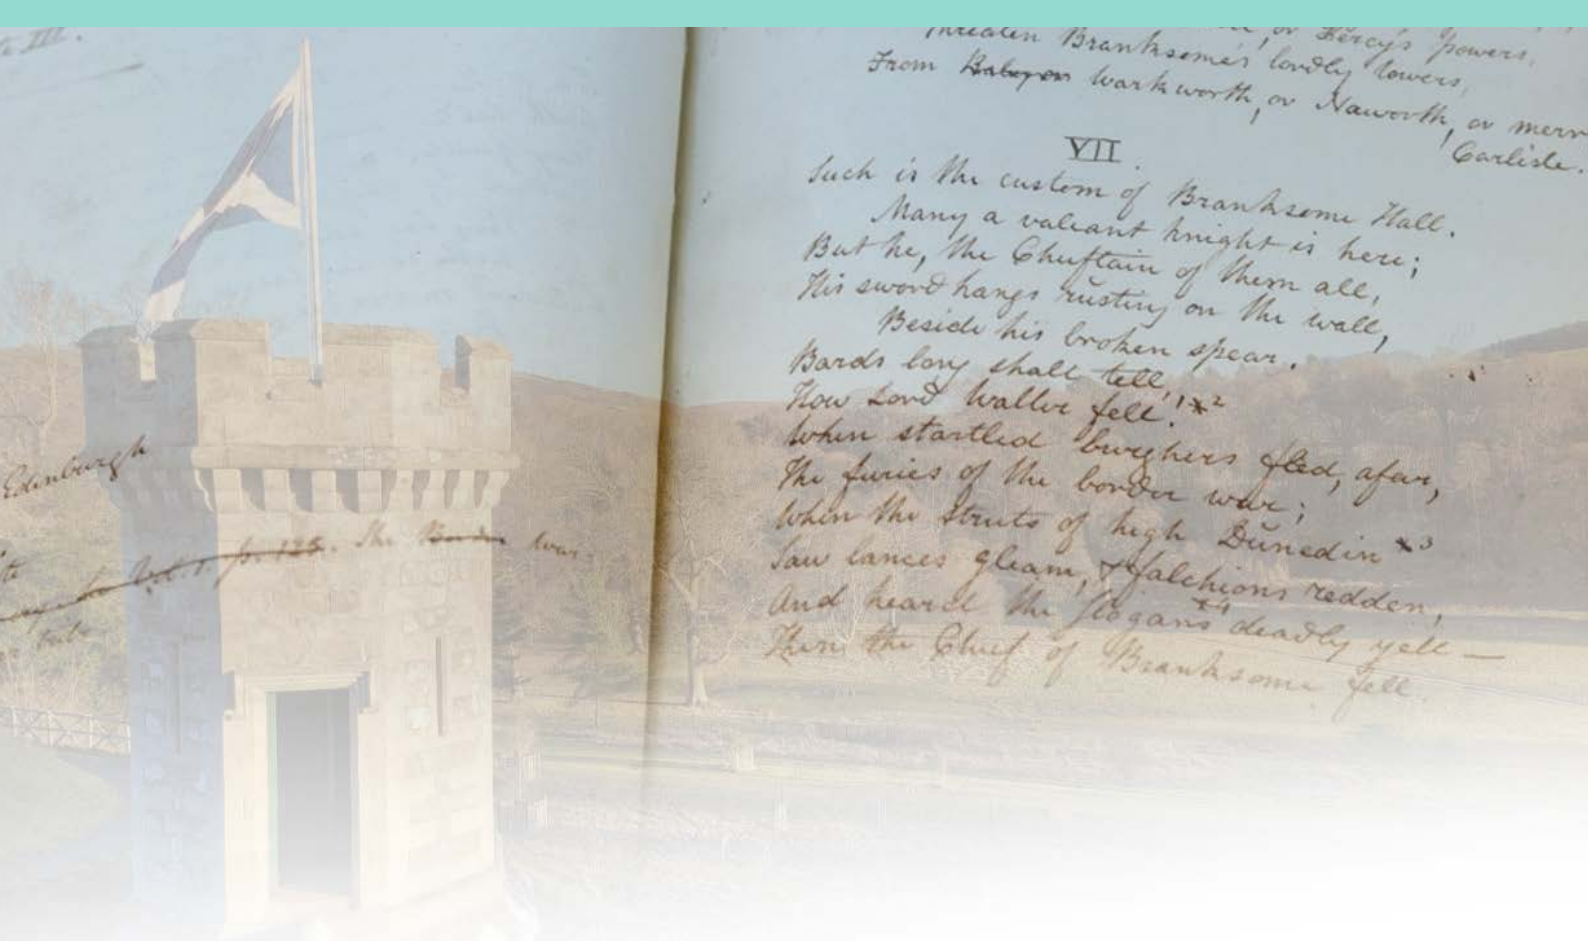 III.
or Percy's powers,
Threaten Branksome's lordly towers,
From Warkworth, or Naworth, or merr
Carlisle.
VII.
Such is the custom of Branksome Hall.
Many a valiant knight is here;
But he, the Chieftain of them all,
His sword hangs rusting on the wall,
Beside his broken spear.
Bards long shall tell,
How Lord Walter fell!
When startled burghers fled, afar,
The furies of the border war;
When the Streets of high Dunedin x3
Saw lances gleam, & falchions redden,
And heard the slogan's x4 deadly yell —
Then the Chief of Branksome fell.
Edinburgh
p. 125. The Border war